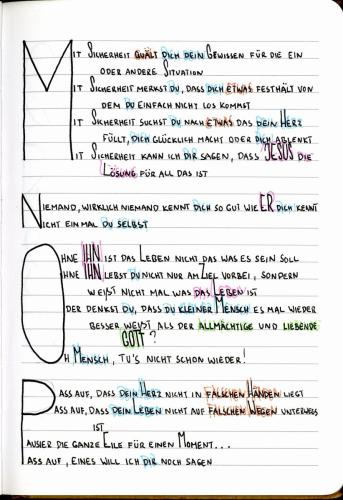 MIT SICHERHEIT QUÄLT DICH DEIN GEWISSEN FÜR DIE EIN
ODER ANDERE SITUATION
MIT SICHERHEIT MERKST DU, DASS DICH ETWAS FESTHÄLT VON
DEM DU EINFACH NICHT LOS KOMMST
MIT SICHERHEIT SUCHST DU NACH ETWAS DAS DEIN HERZ
FÜLLT, DICH GLÜCKLICH MACHT ODER DICH ABLENKT
MIT SICHERHEIT KANN ICH DIR SAGEN, DASS JESUS DIE
LÖSUNG FÜR ALL DAS IST
NIEMAND, WIRKLICH NIEMAND KENNT DICH SO GUT WIE ER DICH KENNT
NICHT EINMAL DU SELBST
OHNE IHN IST DAS LEBEN NICHT DAS WAS ES SEIN SOLL
OHNE IHN LEBST DU NICHT NUR AM ZIEL VORBEI, SONDERN
WEIßT NICHT MAL WAS DAS LEBEN IST
ODER DENKST DU, DASS DU KLEINER MENSCH ES MAL WIEDER
BESSER WEIßT ALS DER ALLMÄCHTIGE UND LIEBENDE
GOTT?
OH MENSCH, TU'S NICHT SCHON WIEDER!
PASS AUF, DASS DEIN HERZ NICHT IN FALSCHEN HÄNDEN LIEGT
PASS AUF, DASS DEIN LEBEN NICHT AUF FALSCHEN WEGEN UNTERWEGS
IST
PAUSIER DIE GANZE EILE FÜR EINEN MOMENT...
PASS AUF, EINES WILL ICH DIR NOCH SAGEN